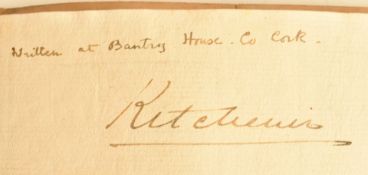 Written at Bantry House. Co Cork.
Kitchener